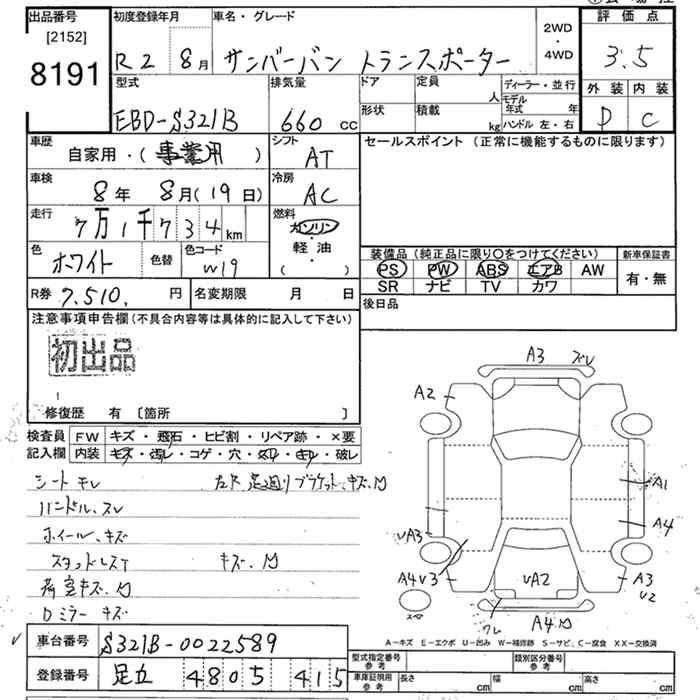 出品番号 初度登録年月 車名・グレード 2WD・4WD 評価点
[2152]
8191 R2 8月 サンバーバン トランスポーター 3.5
型式 排気量 ドア 定員 人 ディーラー・並行 外装 内装
EBD-S321B 660cc 形状 積載 kg モデル年式 年 ハンドル 左・右 D C
車歴 シフト セールスポイント (正常に機能するものに限ります)
自家用・(事業用) AT
車検 冷房
8年 8月(19日) AC
走行 燃料
7万1千734km ガソリン・軽・油
色 色替 色コード ( ) 装備品 (純正品に限り○をつけてください) 新車保証書
ホワイト W19 PS PW ABS エアB AW 有・無
SR ナビ TV カワ
R券 7.510. 円 名変期限 月 日 後日品
注意事項申告欄(不具合内容等は具体的に記入して下さい)
初出品
修復歴 有 [箇所 ]
検査員 FW キズ・飛石・ヒビ割・リペア跡・×要
記入欄 内装 キズ・汚レ・コゲ・穴・スレ・キレ・破レ
シートキレ
ハンドル、スレ
ホイール、キズ
キズ、凹
荷室キズ、凹
Dミラー キズ
A3 ズレ
A2
A1
A4
UA3
A4 U3
UA2
A3
U2
A4凹
A-キズ E-エクボ U-凹み W-補修跡 S-サビ、C-腐食 XX-交換済
車台番号 S321B-0022589
登録番号 足立 4805 415
型式指定番号 参考 類別区分番号 参考
車庫証明用 参考 長さ cm 幅 cm 高さ cm